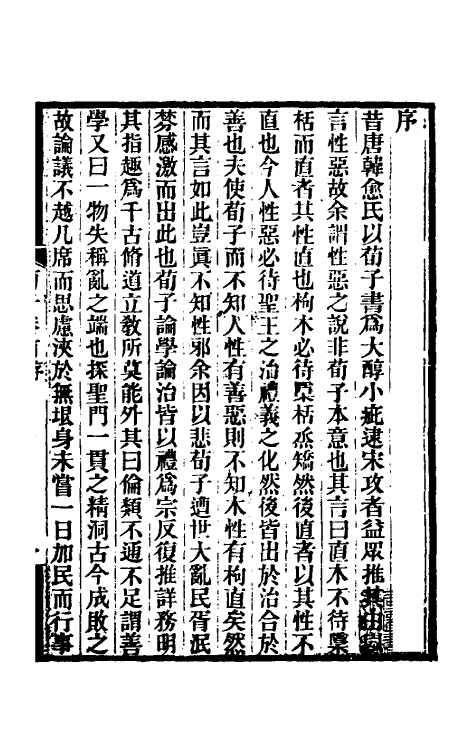 序
昔唐韓愈氏以荀子書爲大醇小疵逮宋攻者益眾推其由以
言性惡故余謂性惡之說非荀子本意也其言曰直木不待檃
栝而直者其性直也枸木必待檃栝烝矯然後直者以其性不
直也今人性惡必待聖王之治禮義之化然後皆出於治合於
善也夫使荀子而不知人性有善惡則不知木性有枸直矣然
而其言如此豈眞不知性邪余因以悲荀子遭世大亂民胥泯
棼感激而出此也荀子論學論治皆以禮爲宗反復推詳務明
其指趣爲千古脩道立敎所莫能外其曰倫類不通不足謂善
學又曰一物失稱亂之端也探聖門一貫之精洞古今成敗之
故論議不越几席而思慮浹於無垠身未嘗一日加民而行事